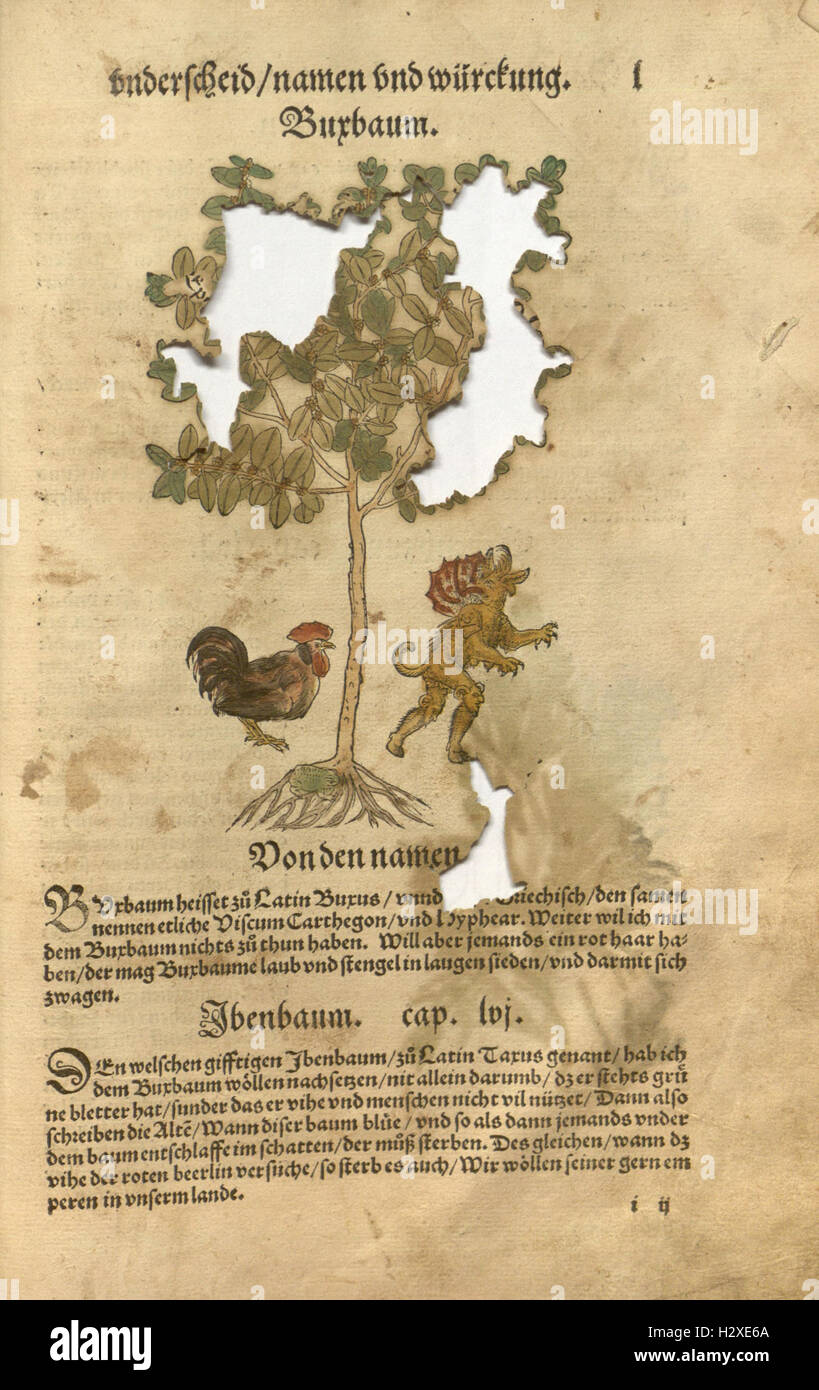 vnderscheid/namen vnd würckung. l
Buxbaum.
Von den namen
BVxbaum heisset zů Latin Buxus / vnnd Griechisch/den samen
nennen etliche Viscum Carthegon/vnd Hyphear. Weiter wil ich mit
dem Buxbaum nichts zů thun haben. Will aber jemands ein rot haar ha-
ben/der mag Buxbaume laub vnd stengel in laugen sieden/vnd darmit sich
zwagen.
Ibenbaum. cap. lvj.
DEn welschen gifftigen Ibenbaum/zů Latin Taxus genant/hab ich
dem Buxbaum wöllen nachsetzen/nit allein darumb/dz er stehts grü
ne bletter hat/sunder das er vihe vnd menschen nicht vil nützet/Dann also
schreiben die Altē/Wann diser baum blüe/vnd so als dann jemands vnder
dem baum entschlaffe im schatten/der můß sterben. Des gleichen/wann dz
vihe der roten beerlin versůche/so sterb es auch/Wir wöllen seiner gern em
peren in vnserm lande.
i ij
alamy
a
alamy stock photo
H2XE6A
www.alamy.com